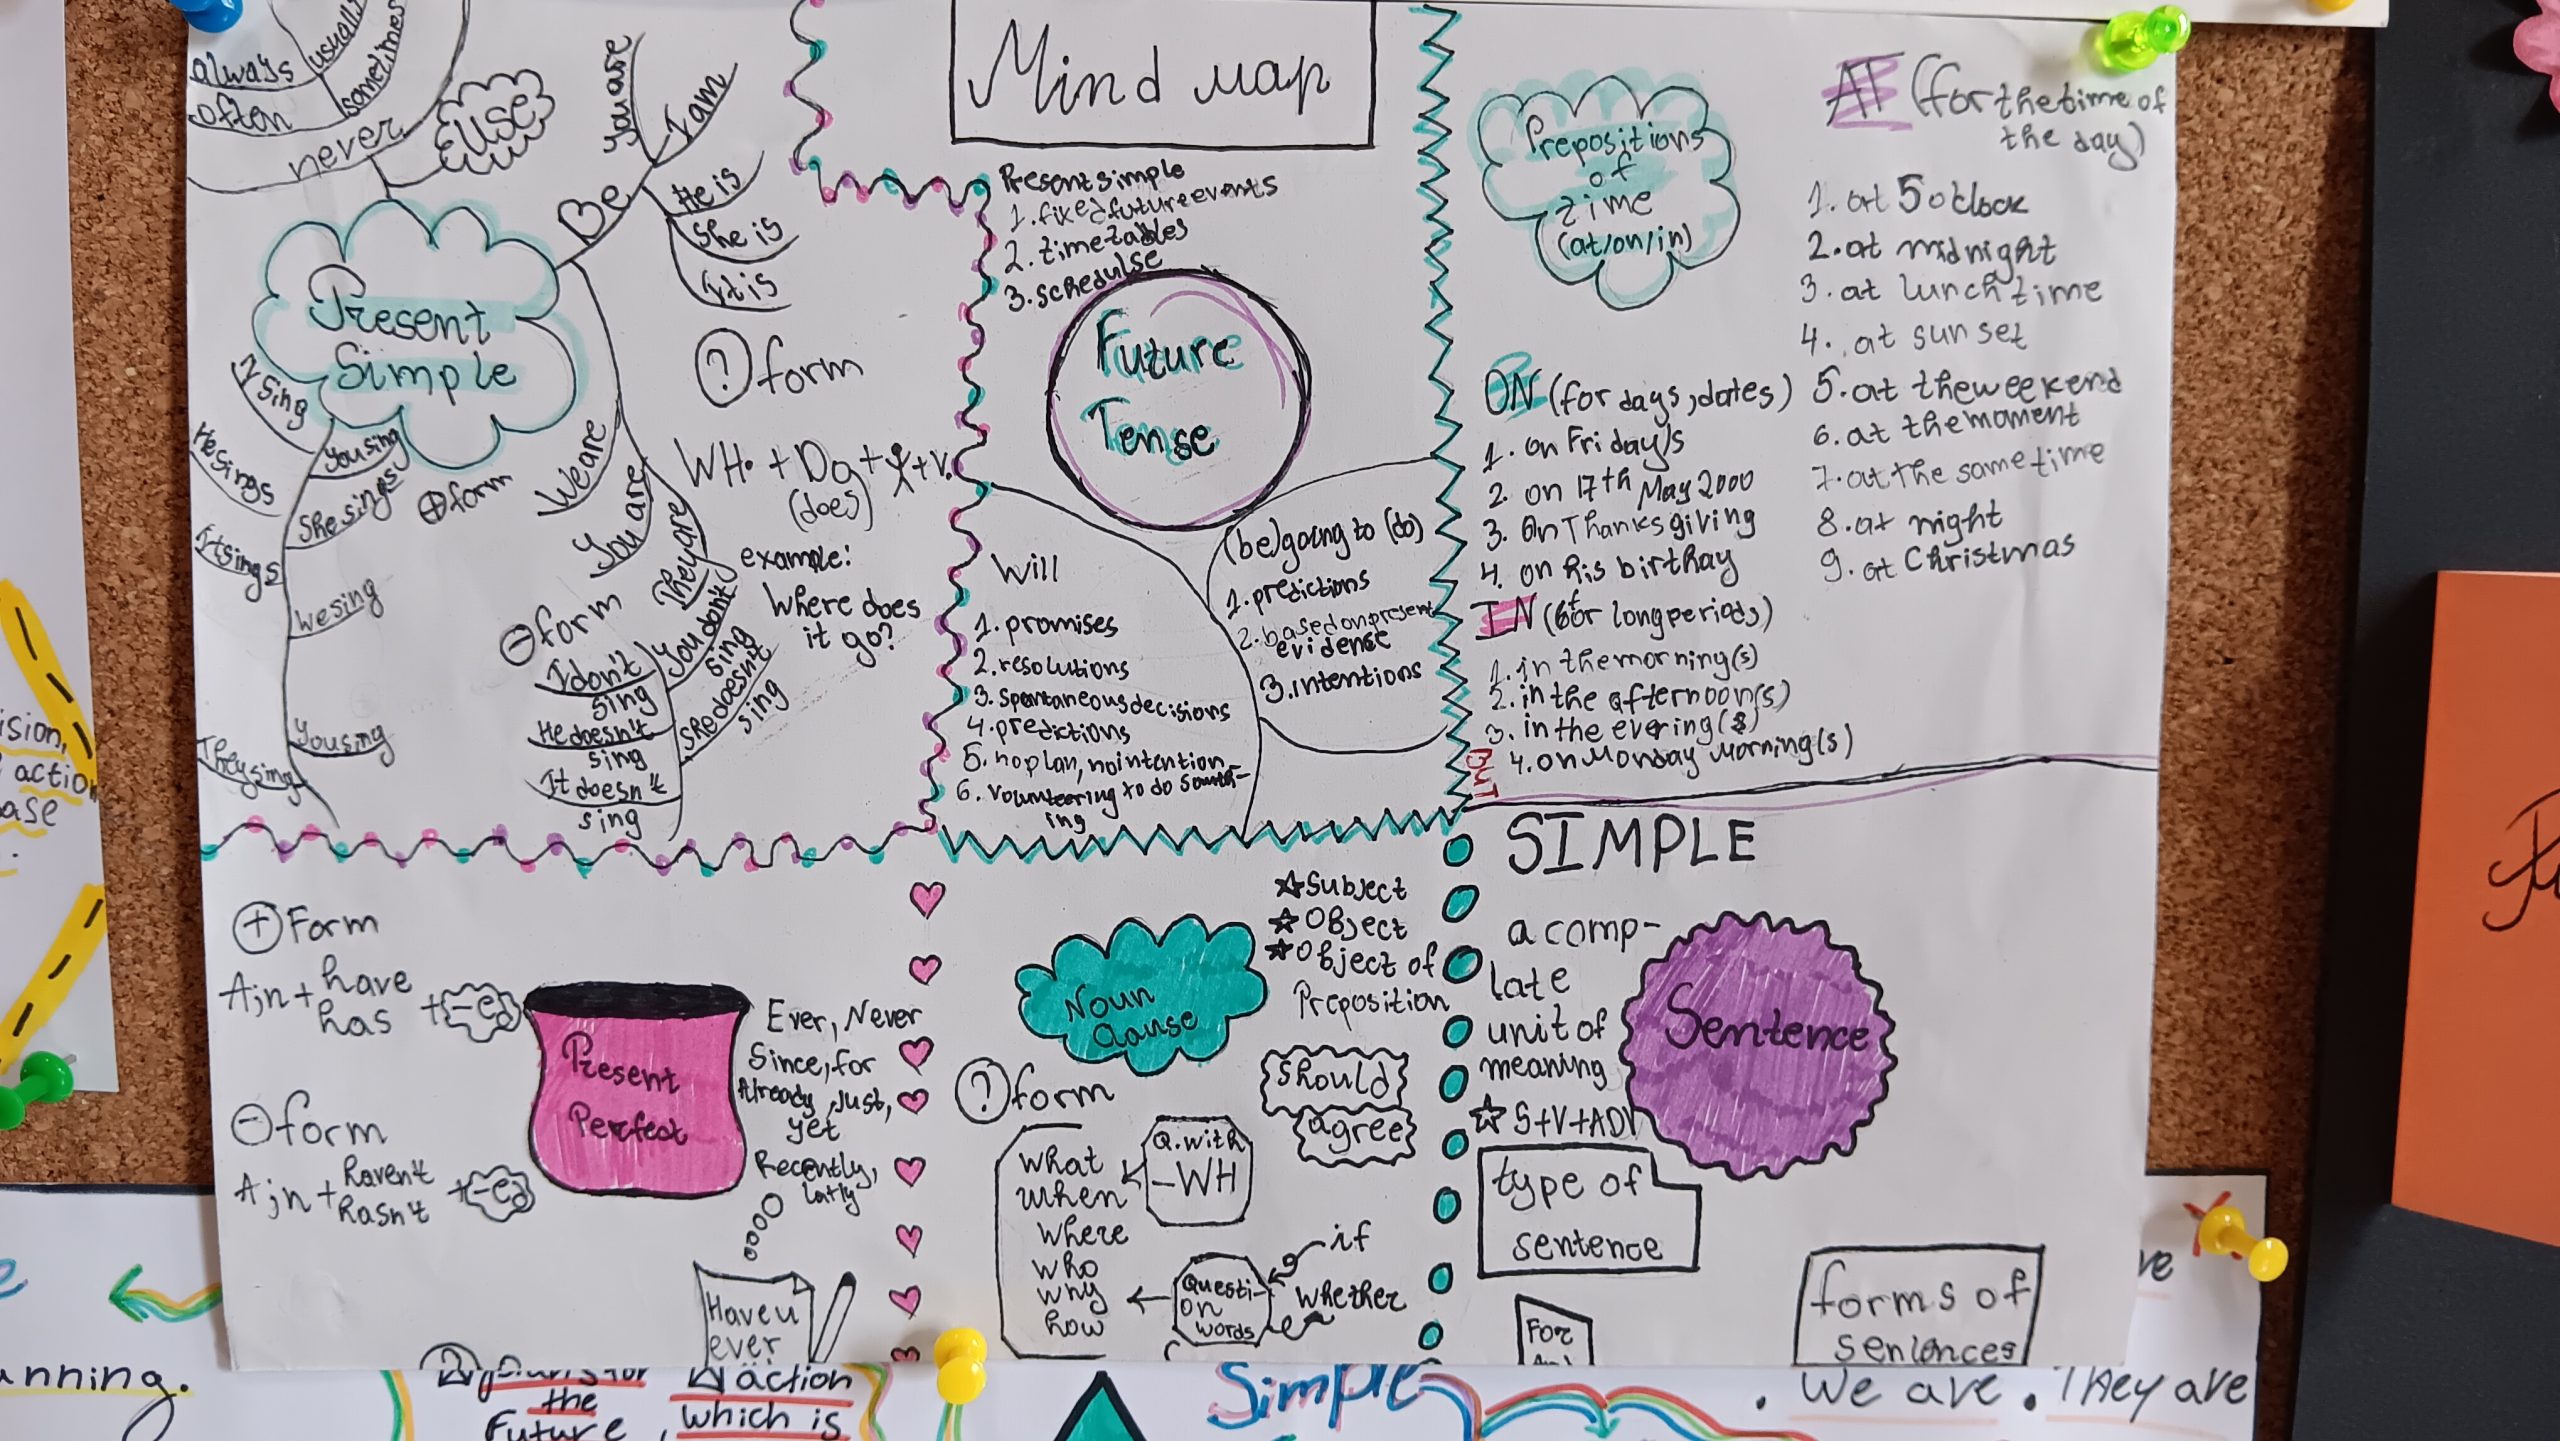 Mind map
always
usually
sometimes
often
never
use
Be
You are
I am
He is
She is
It is
We are
You are
They are
Present
Simple
⊕ form
I sing
You sing
He sings
She sings
It sings
We sing
You sing
They sing
? form
WH. + Do +
(does)
example:
Where does
it go?
⊖ form
I don't
sing
You don't
sing
He doesn't
sing
She doesn't
sing
It doesn't
sing
Present simple
1. fixed future events
2. timetables
3. schedulse
Future
Tense
Will
1. promises
2. resolutions
3. spontaneous decisions
4. predictions
5. no plan, no intention
6. volunteering to do someth-
ing
(be) going to (do)
1. predictions
2. based on present
evidense
3. intentions
Prepositions
of
time
(at/on/in)
AT (for the time of
the day)
1. at 5 o'clock
2. at midnight
3. at lunch time
4. at sun set
5. at the weekend
6. at the moment
7. at the same time
8. at night
9. at Christmas
ON (for days, dates)
1. on Friday/s
2. on 17th May 2000
3. on Thanks giving
4. on his birthay
IN (for long periods)
1. in the morning(s)
2. in the afternoon(s)
3. in the evering(s)
BUT
4. on Monday morning(s)
⊕ Form
A;n + have
has
+ -ed
⊖ form
A;n + haven't
hasn't
+ -ed
Present
Perfect
Ever, Never
Since, for
Already, just,
yet
Recently,
latly
Have u
ever
Noun
Clause
☆ Subject
☆ Object
☆ Object of
Preposition
should
agree
? form
Q. with
-WH
what
when
where
who
why
how
Questi-
on
words
if
whether
SIMPLE
a comp-
late
unit of
meaning
☆ S+V+ADV
Sentence
type of
sentence
For
forms of
sentences
ision,
action
ase
nning.
2)
the
Future
action
which is
Simple
. We are . They are
ve